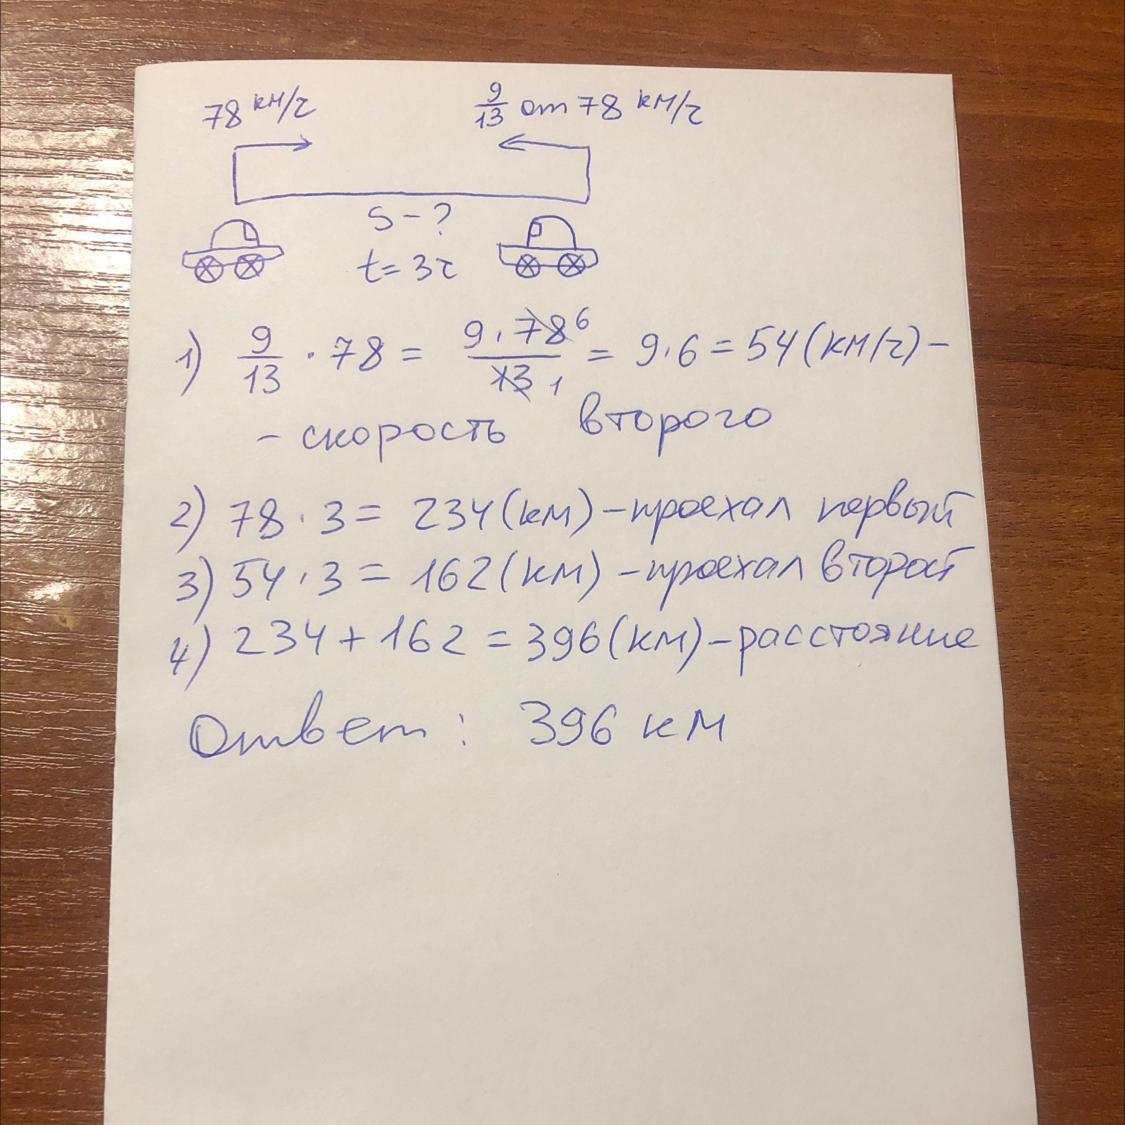 78 км/ч
9/13 от 78 км/ч
S - ?
t = 3ч
1) 9/13 · 78 = 9 · 78 6 / 13 1 = 9 · 6 = 54 (км/ч) -
- скорость второго
2) 78 · 3 = 234 (км) - проехал первый
3) 54 · 3 = 162 (км) - проехал второй
4) 234 + 162 = 396 (км) - расстояние
Ответ: 396 км